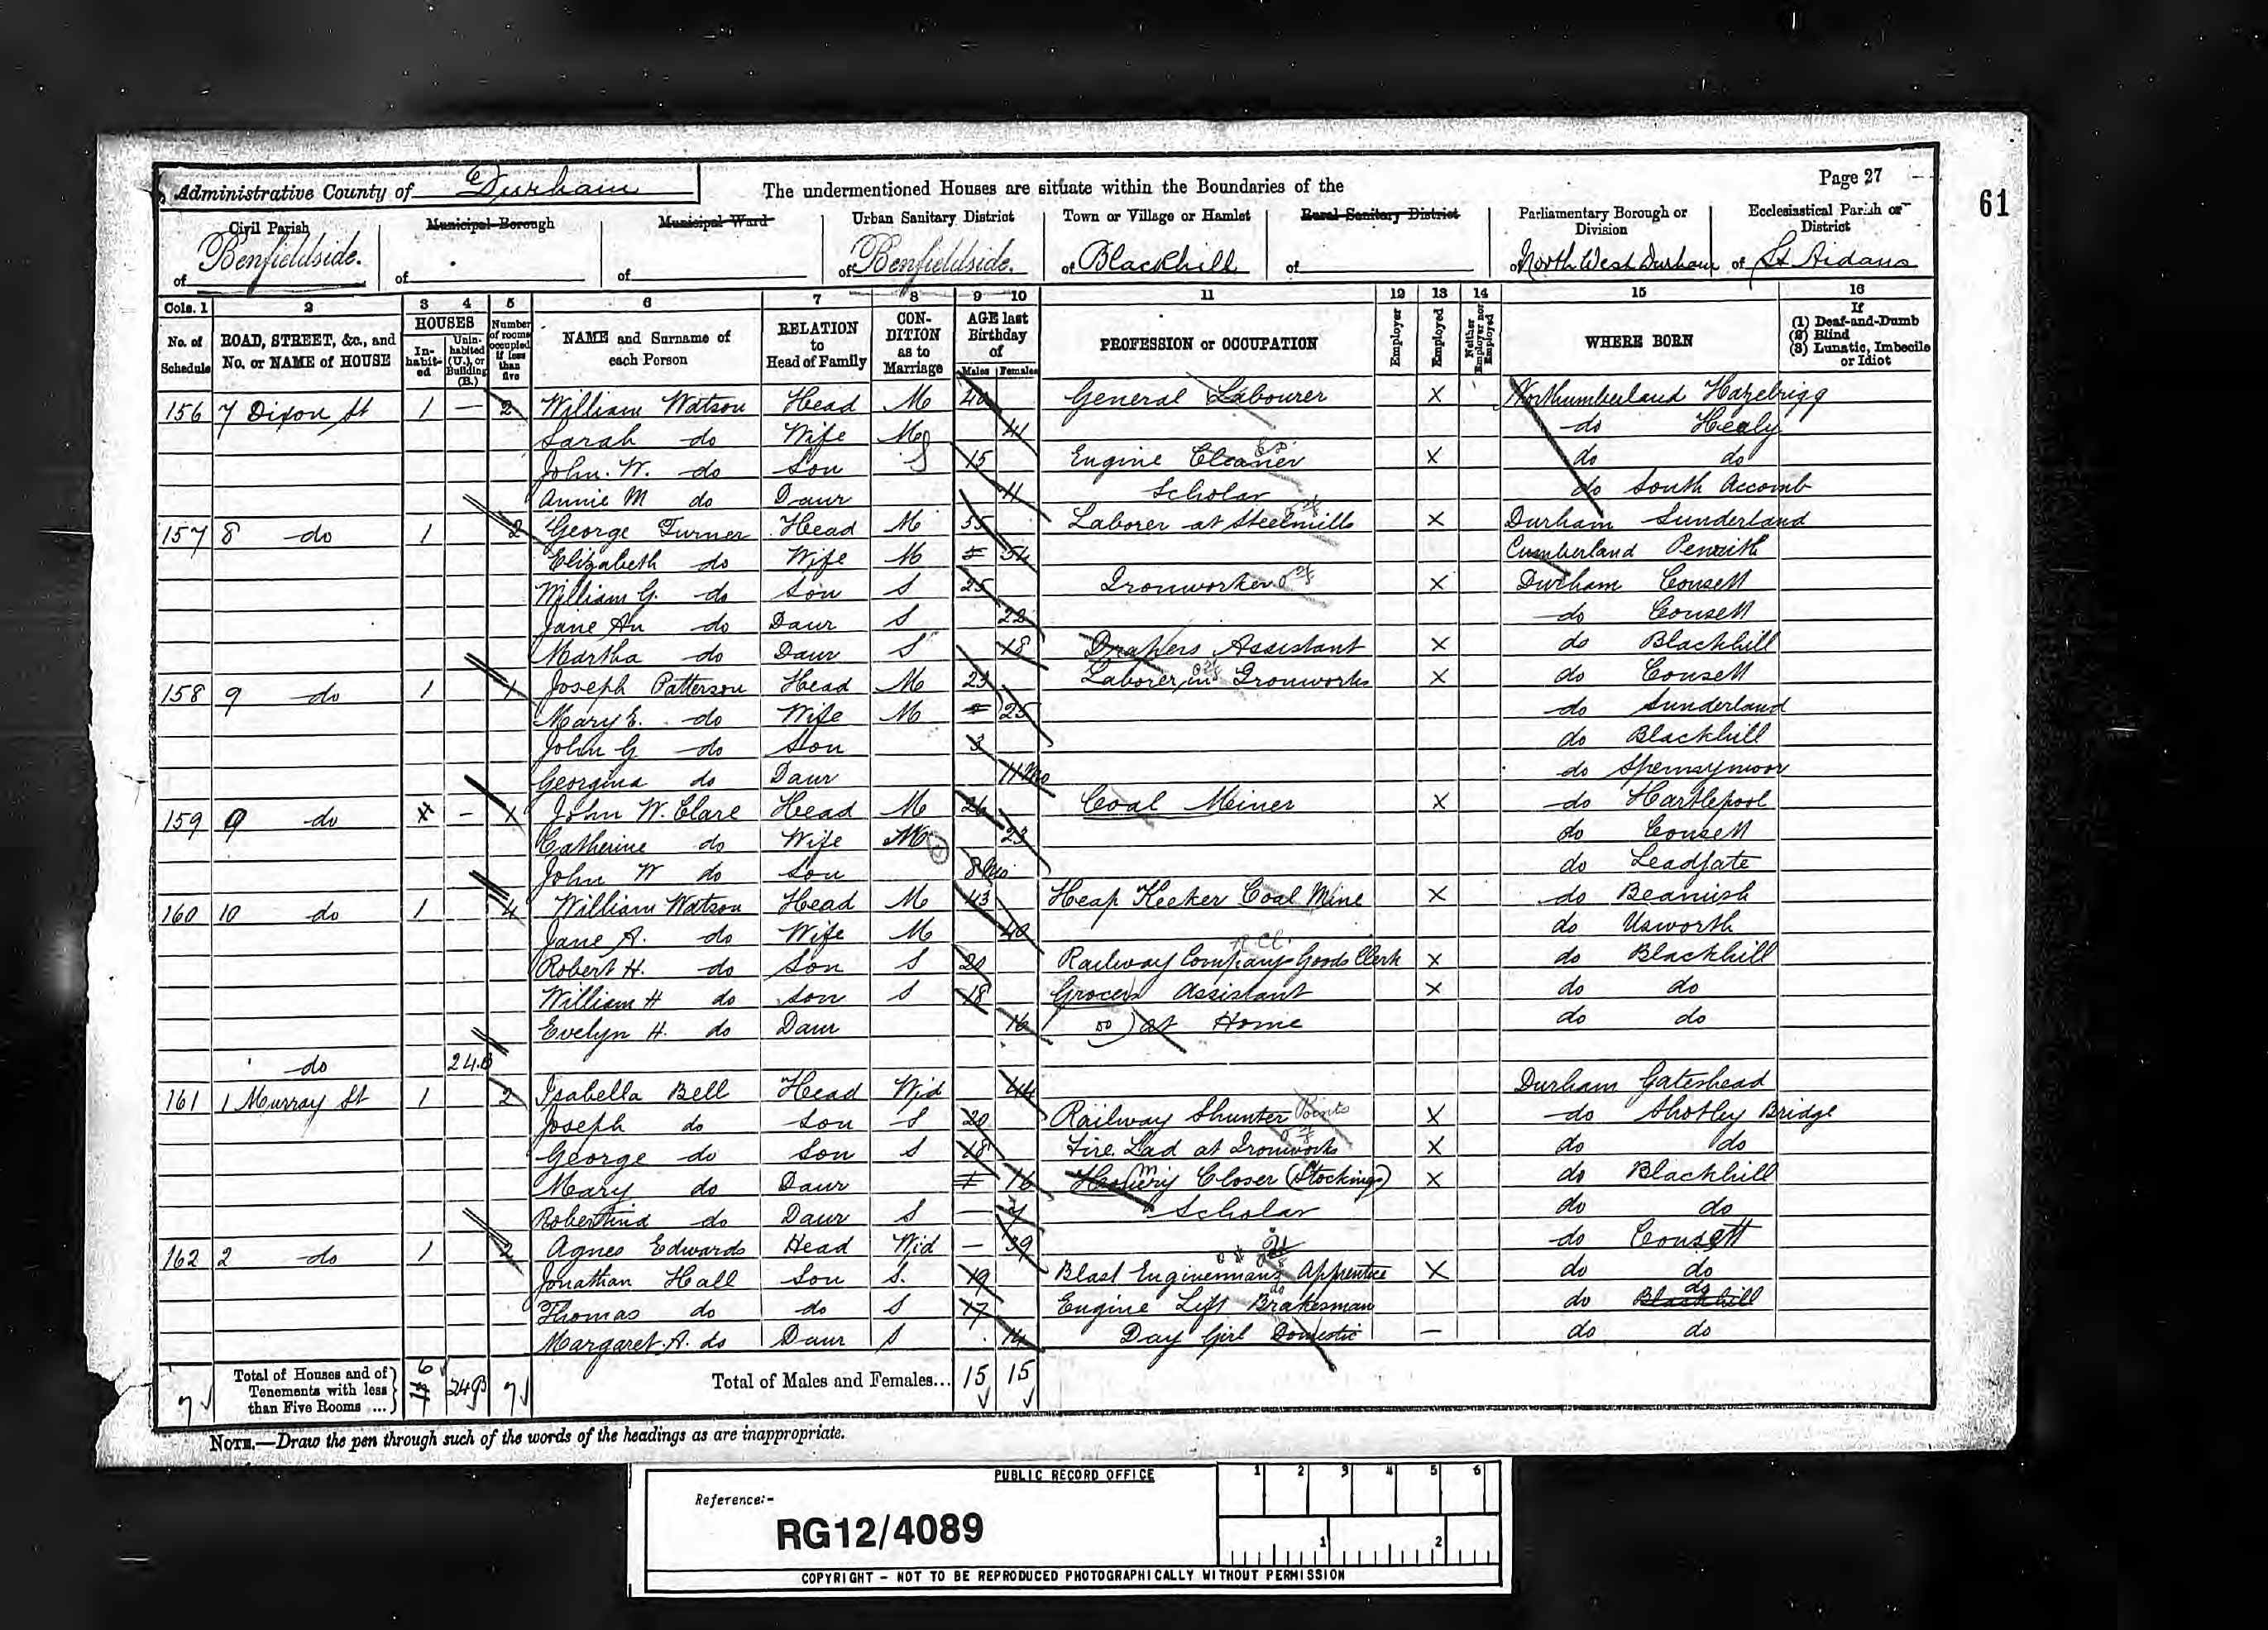 Page 27
61
Administrative County of Durham
The undermentioned Houses are situate within the Boundaries of the
Civil Parish of Benfieldside.
Municipal Borough of
Municipal Ward of
Urban Sanitary District of Benfieldside.
Town or Village or Hamlet of Blackhill
Rural Sanitary District of
Parliamentary Borough or Division of North West Durham
Ecclesiastical Parish or District of St Aidans
Cols. 1 2 3 4 5 6 7 8 9 10 11 12 13 14 15 16
No. of Schedule
ROAD, STREET, &c., and No. or NAME of HOUSE
HOUSES
In-habit-ed
Unin-habited (U.), or Building (B.)
Number of rooms occupied if less than five
NAME and Surname of each Person
RELATION to Head of Family
CON-DITION as to Marriage
AGE last Birthday of
Males Females
PROFESSION or OCCUPATION
Employer
Employed
Neither Employer nor Employed
WHERE BORN
If (1) Deaf-and-Dumb (2) Blind (3) Lunatic, Imbecile or Idiot
156 7 Dixon St 1 — 2 William Watson Head M General Labourer X Northumberland Hazelrigg
Sarah do Wife M 41 do Healy
John. W. do Son S 15 Engine Cleaner X do do
Annie M do Daur 11 Scholar do South Accomb
157 8 do 1 2 George Turner Head M 55 Laborer at Steelmills X Durham Sunderland
Elizabeth do Wife M 54 Cumberland Penrith
William G. do Son S 25 Ironworker X Durham Consett
Jane An do Daur S 22 do Consett
Martha do Daur S 18 Drapers Assistant X do Blackhill
158 9 do 1 1 Joseph Patterson Head M 23 Laborer in Ironworks X do Consett
Mary E. do Wife M 25 do Sunderland
John G do Son 3 do Blackhill
Georgina do Daur 11 Mo do Spennymoor
159 9 do — 1 John W. Clare Head M 26 Coal Meiner X do Hartlepool
Catherine do Wife M 23 do Consett
John W do Son 8 Mo do Leadgate
160 10 do 1 4 William Watson Head M 43 Heap Keeker Coal Mine X do Beamish
Jane A. do Wife M 40 do Usworth
Robert H. do Son S 20 Railway Company Goods Clerk X do Blackhill
William H do Son S 18 Grocers Assistant X do do
Evelyn H. do Daur 16 at Home do do
do 24.B
161 1 Murray St 1 2 Isabella Bell Head Wid 44 Durham Gateshead
Joseph do Son S 20 Railway Shunter X do Shotley Bridge
George do Son S 18 Fire. Lad at Ironworks X do do
Mary do Daur 16 Hosiery Closer (Stockings) X do Blackhill
Robertina do Daur S — Scholar do do
162 2 do 1 2 Agnes Edwards Head Wid — 39 do Consett
Jonathan Hall Son S. 19 Blast Enginemans Apprentice X do do
Thomas do do S 17 Engine Lift Brakesman do Blackhill do
Margaret. A. do Daur S 14 Day Girl Domestic — do do
Total of Houses and of Tenements with less than Five Rooms ...
7 6 24B 7
Total of Males and Females... 15 15
NOTE.—Draw the pen through such of the words of the headings as are inappropriate.
PUBLIC RECORD OFFICE
1 2 3 4 5 6
Reference:-
RG12/4089
1 2
COPYRIGHT - NOT TO BE REPRODUCED PHOTOGRAPHICALLY WITHOUT PERMISSION